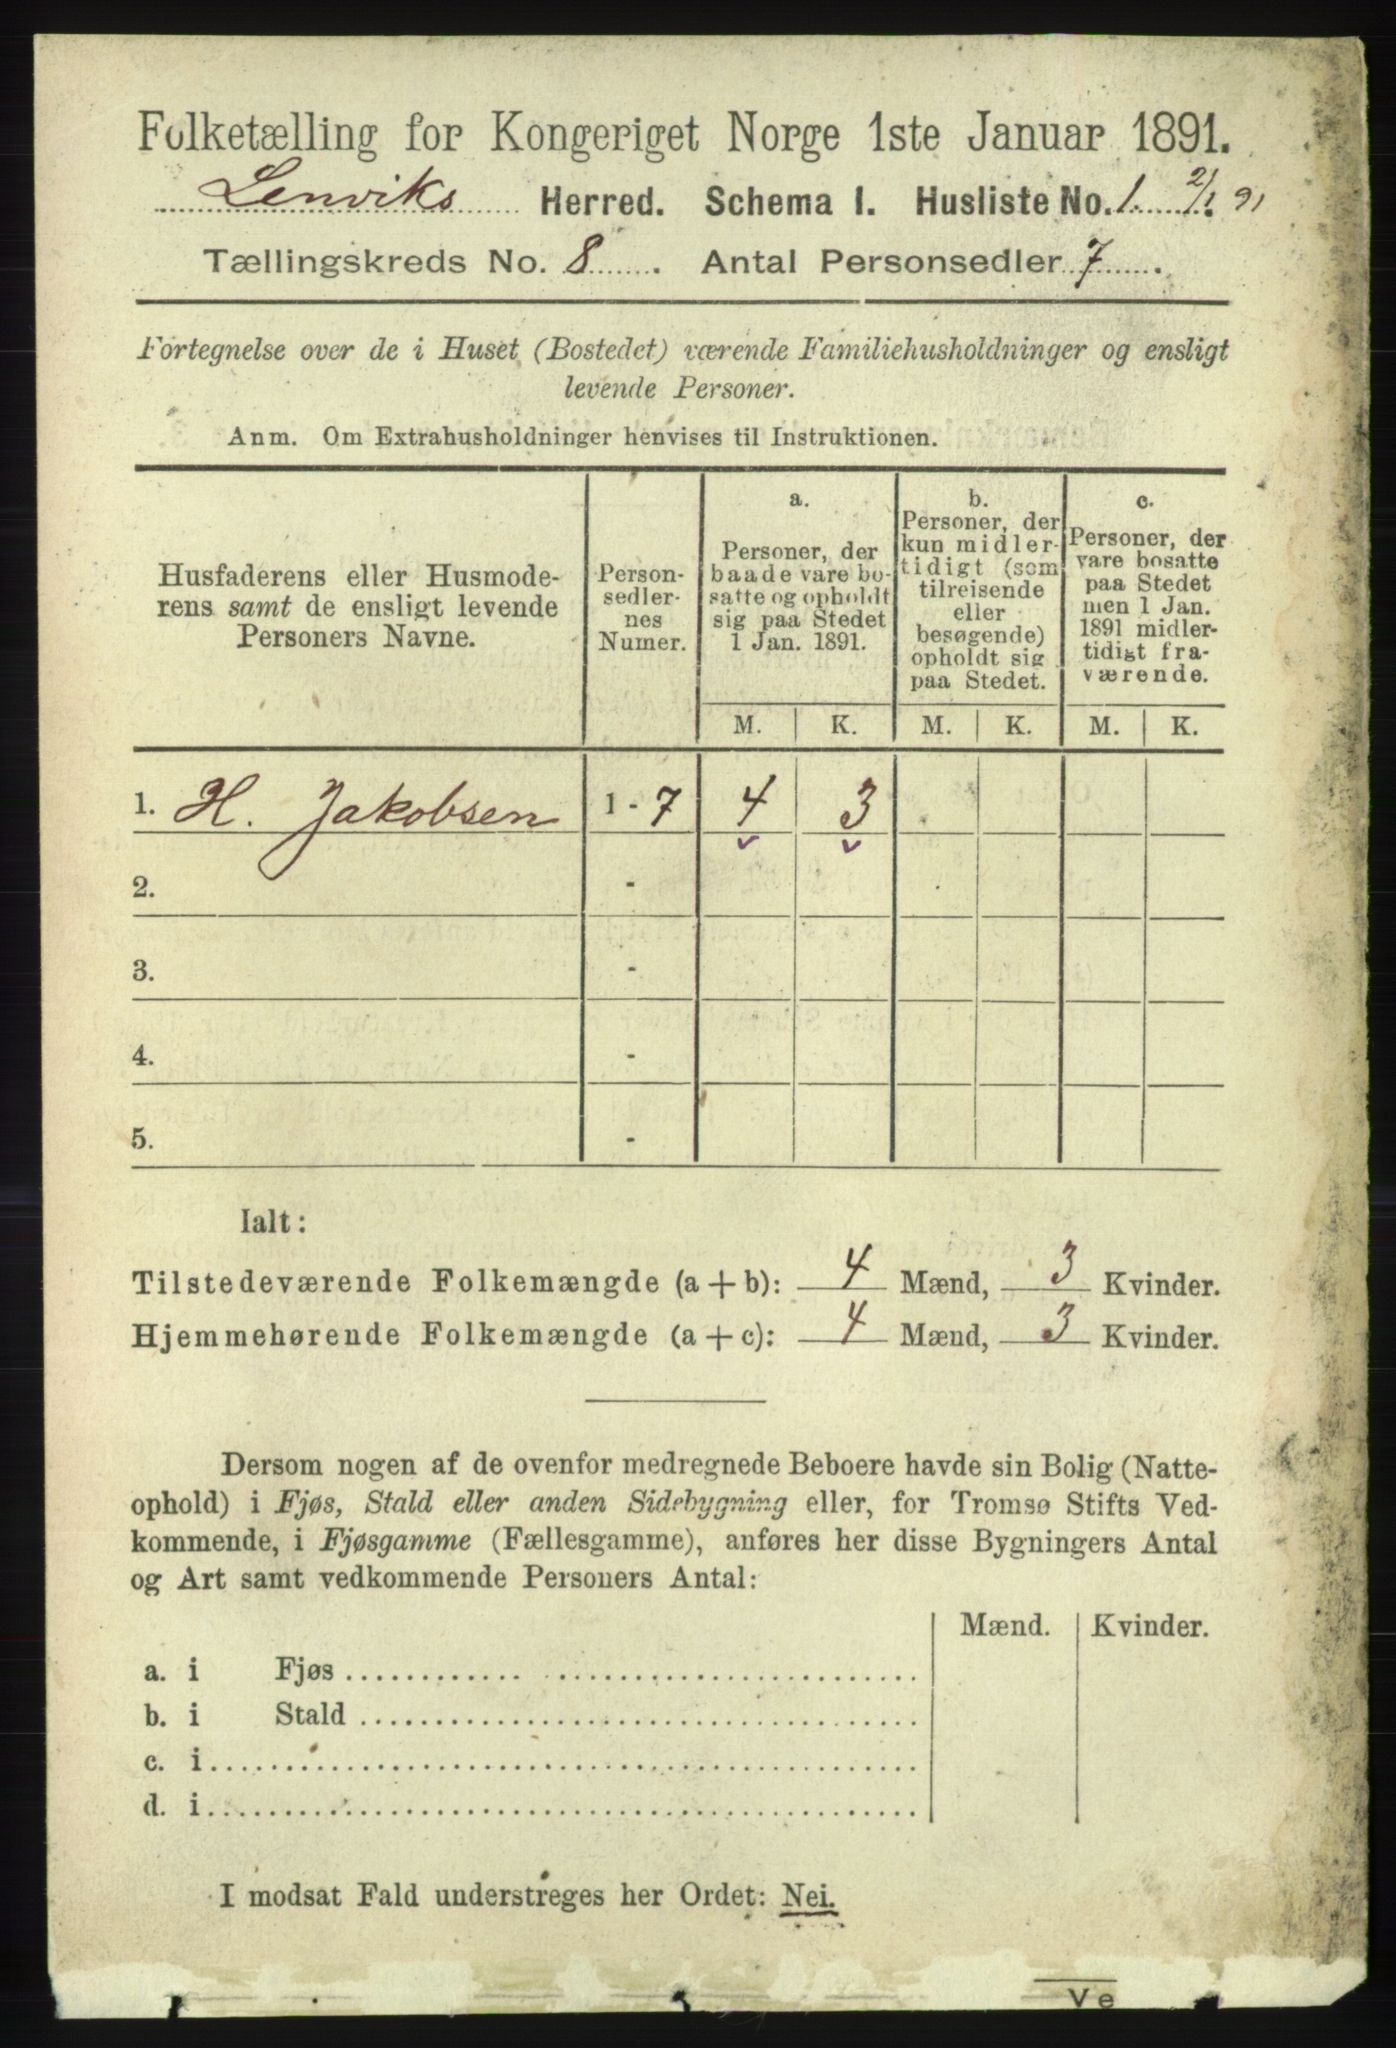 Folketælling for Kongeriget Norge 1ste Januar 1891.
Lenviks Herred. Schema I. Husliste No. 1. 2/1. 91
Tællingskreds No. 8. Antal Personsedler 7.
Fortegnelse over de i Huset (Bostedet) værende Familiehusholdninger og ensligt
levende Personer.
Anm. Om Extrahusholdninger henvises til Instruktionen.
Husfaderens eller Husmode-
rens samt de ensligt levende
Personers Navne.
Person-
sedler-
nes
Numer.
a.
Personer, der
baade vare bo-
satte og opholdt
sig paa Stedet
1 Jan. 1891.
b.
Personer, der
kun midler-
tidigt (som
tilreisende
eller
besøgende)
opholdt sig
paa Stedet.
c.
Personer, der
vare bosatte
paa Stedet
men 1 Jan.
1891 midler-
tidigt fra-
værende.
M. K. M. K. M. K.
1. H. Jakobsen 1 - 7 4 3
2. -
3. -
4. -
5. -
Ialt:
Tilstedeværende Folkemængde (a + b): 4 Mænd, 3 Kvinder.
Hjemmehørende Folkemængde (a + c): 4 Mænd, 3 Kvinder.
Dersom nogen af de ovenfor medregnede Beboere havde sin Bolig (Natte-
ophold) i Fjøs, Stald eller anden Sidebygning eller, for Tromsø Stifts Ved-
kommende, i Fjøsgamme (Fællesgamme), anføres her disse Bygningers Antal
og Art samt vedkommende Personers Antal:
Mænd. Kvinder.
a. i Fjøs
b. i Stald
c. i
d. i
I modsat Fald understreges her Ordet: Nei.
Ve